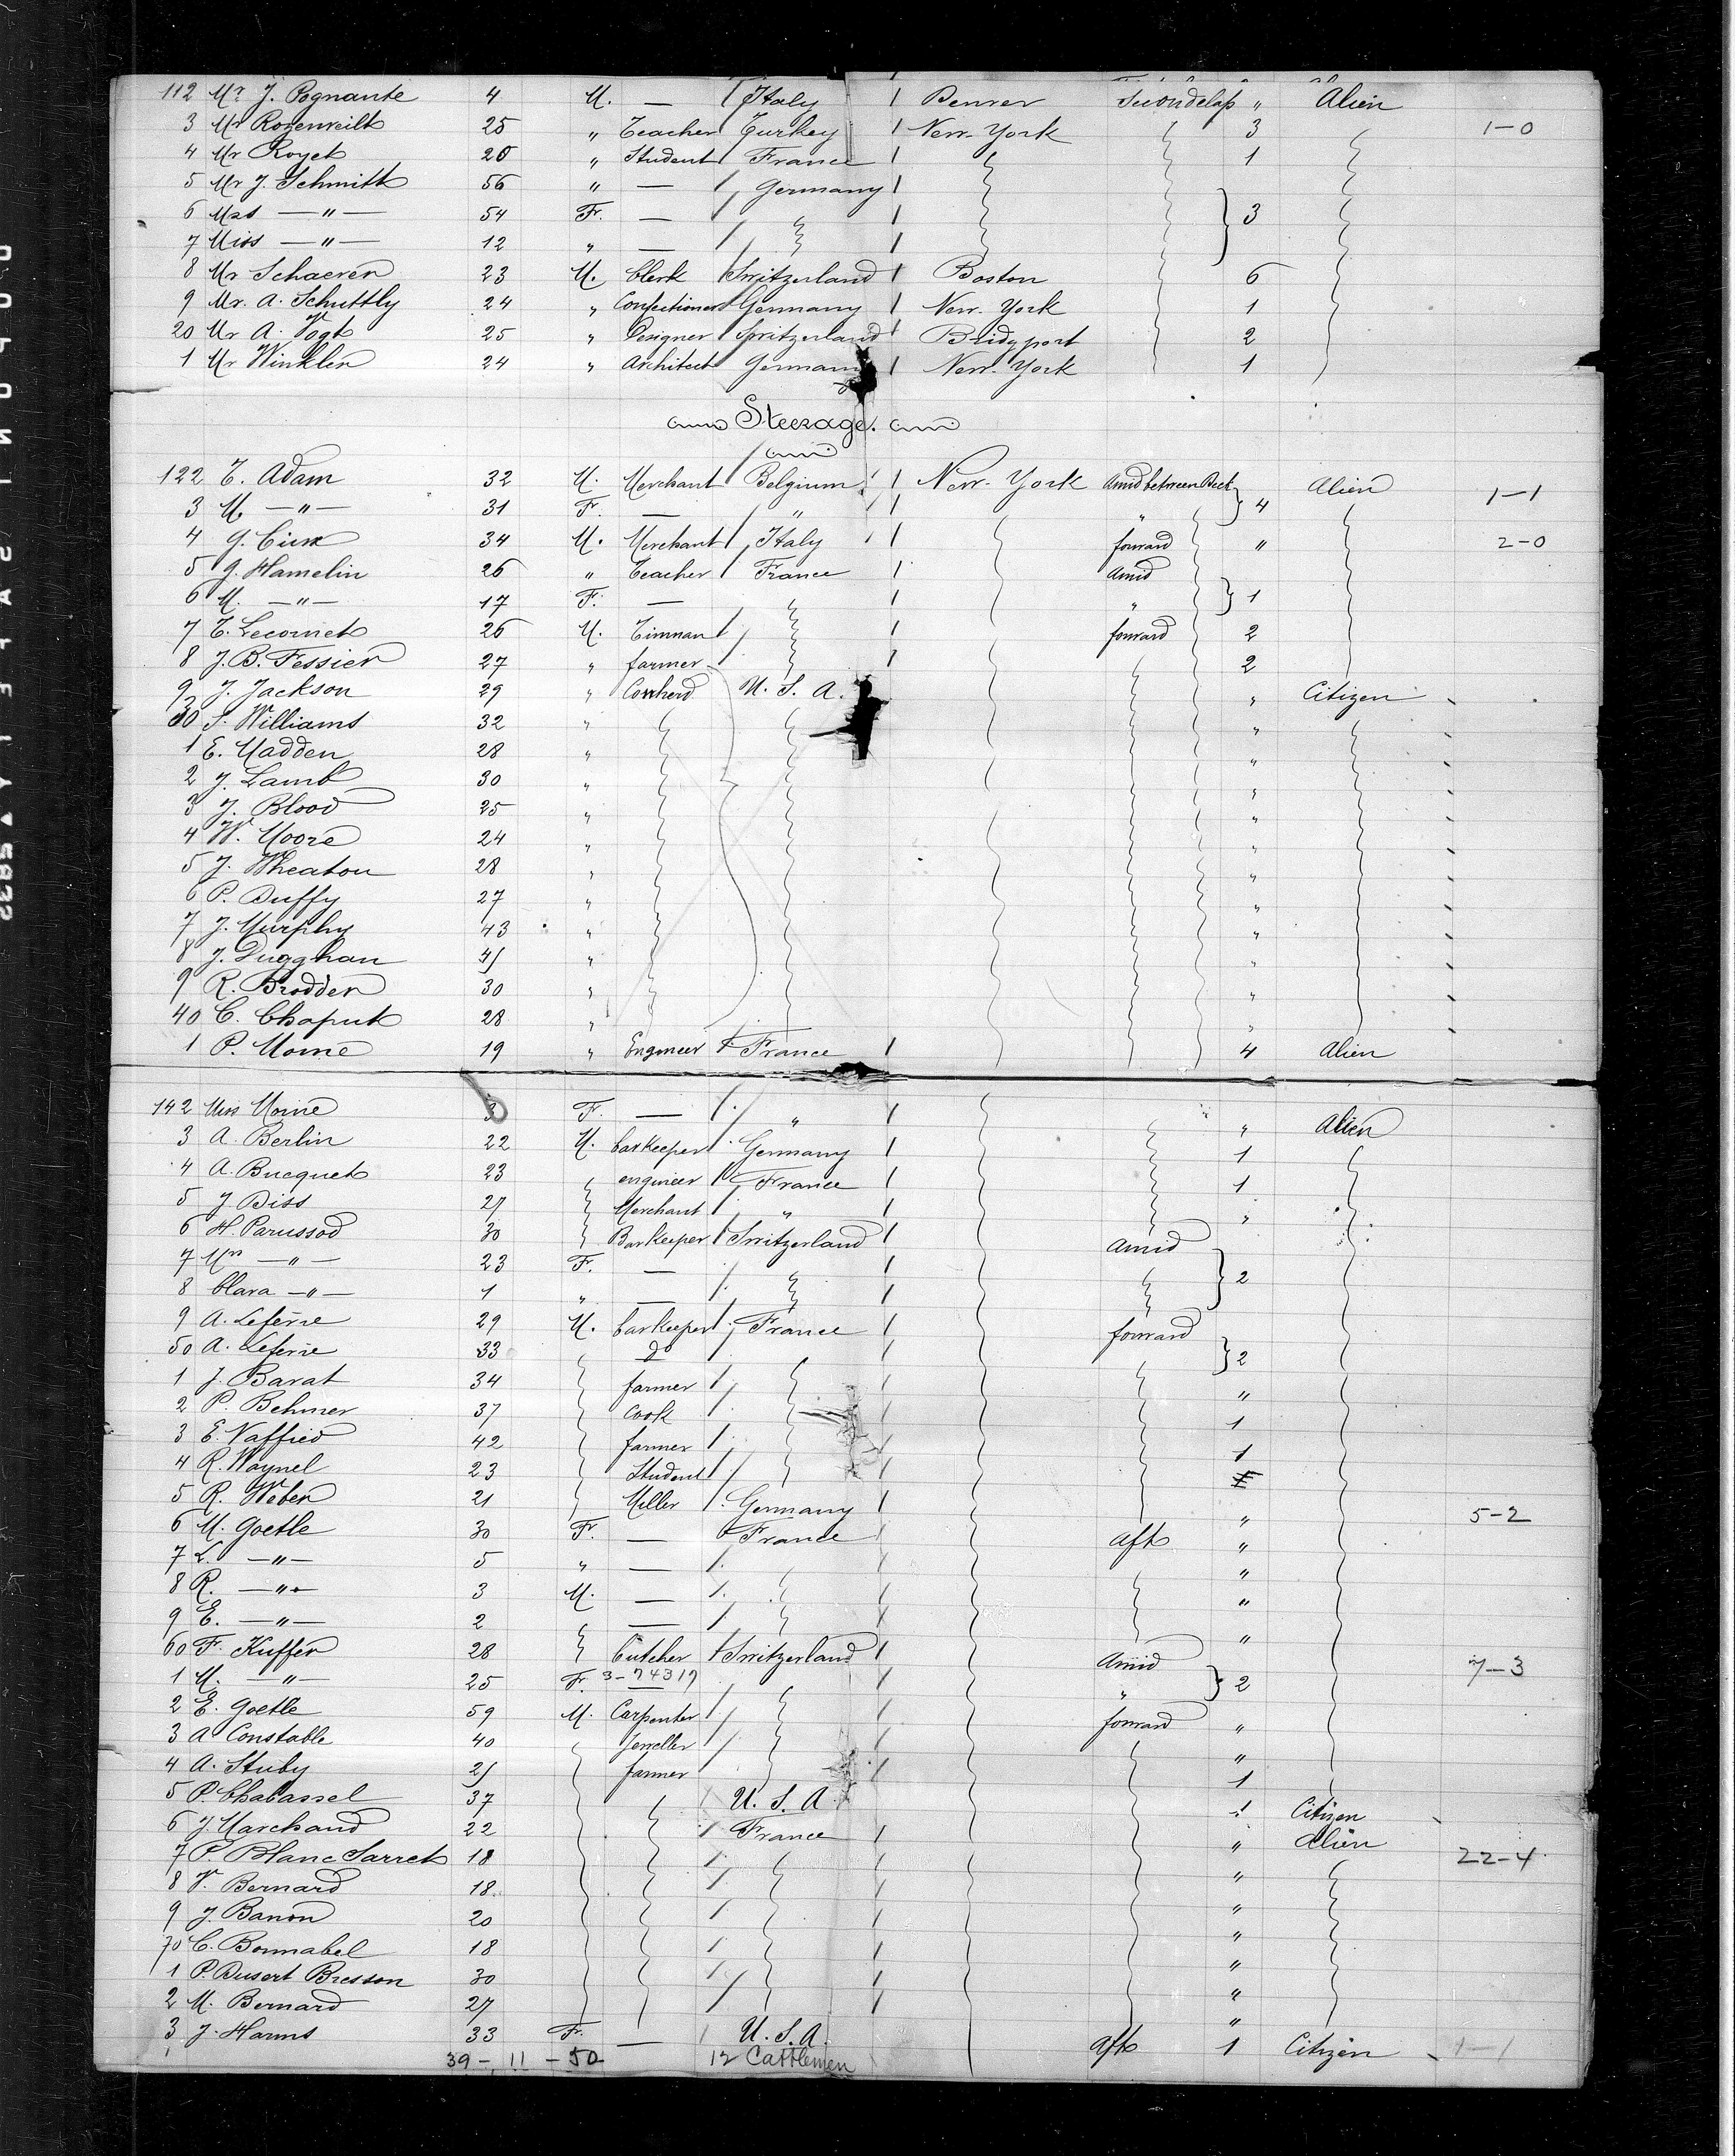 112 Mr. J. Rognante 4 M. — Italy 1 Denver Secondclass " Alien
3 Mr Rozenveilt 25 " Teacher Turkey 1 New-York 3 1-0
4 Mr Royet 20 " Student France 1 1
5 Mr J. Schmitt 56 " — Germany 1
6 Mrs — " — 54 F. — 1 3
7 Miss — " — 12 " — 1
8 Mr Schaerer 23 M. Clerk Switzerland 1 Boston 6
9 Mr. A. Schuttly 24 " Confectioner Germany 1 New-York 1
20 Mr A. Vogt 25 " Designer Switzerland 1 Bridgport 2
1 Mr Winkler 24 " Architect Germany 1 New-York 1
Steerage.
122 E. Adam 32 M. Merchant Belgium 1 New-York Amid between Deck Alien 1-1
3 M — " — 31 F. — " 1 " 4
4 G. 34 M. Merchant Italy 1 forward " 2-0
5 G. Hamelin 26 " Teacher France 1 Amid
6 M. — " — 17 F. — 1 " 1
7 E. Lecornet 26 M. 1 forward 2
8 J. B. Fessier 27 " farmer 1 2
9 J. Jackson 29 " Cowherd U. S. A. " Citizen
30 S. Williams 32 " "
1 E. Madden 28 " "
2 J. Lamb 30 " "
3 J. Blood 25 " "
4 W. Moore 24 " "
5 J. Wheaton 28 " "
6 P. Duffy 27 " "
7 J. Murphy 43 " "
8 J. Dugghan 41 " "
9 R. Brodder 30 " "
40 C. Chaput 28 " "
1 P. Moine 19 " Engineer France 1 4 Alien
142 Miss Moine 3 F. — " 1 " Alien
3 A. Berlin 22 M. barkeeper Germany 1 1
4 A. Bucquet 23 engineer France 1 1
5 J Diss 27 Merchant " 1 "
6 H. Parussod 30 Barkeeper Switzerland 1 Amid
7 Mrs — " — 23 F. — 1 2
8 Clara — " — 1 " — 1
9 A. Lefèvre 29 M. barkeeper France 1 forward
50 A. Lefèvre 33 d 1 2
1 J. Barat 34 farmer 1 "
2 P. Behmer 37 Cook 1 1
3 E. Naffied 42 farmer 1 1
4 R. Waynel 23 Student 1
5 R. Weber 21 Miller Germany 1 " 5-2
6 M. Goetle 30 F. — France 1 aft "
7 L. — " — 5 " — 1 "
8 R. — " — 3 M. — 1 "
9 E. — " — 2 — 1 "
60 F. Kuffer 28 butcher Switzerland 1 Amid
1 M. — " — 25 F. 3-74317 — 1 " 2 7-3
2 E. Goetle 59 M. Carpenter 1 forward "
3 A Constable 40 Jeweller 1 "
4 A. Stuby 21 farmer 1 1
5 P. Chabassel 37 U. S. A. 1 Citizen
6 J. Marchand 22 France 1 " Alien
7 P. Blanc Sarret 18 1 " 22-4
8 V. Bernard 18 1 "
9 J. Banon 20 1 "
70 C. Bonnabel 18 1 "
1 P. Dusert Bresson 30 1 "
2 M. Bernard 27 1 "
3 J. Harms 33 F. — U. S. A. aft 1 Citizen 1-1
39 - 11 - 50 12 Cattlemen